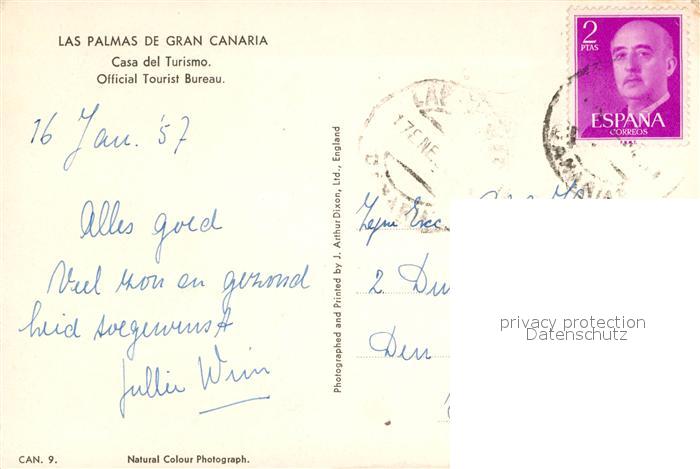 LAS PALMAS DE GRAN CANARIA
Casa del Turismo.
Official Tourist Bureau.
16 Jan. '57
Alles goed
Veel zon en gezond
heid toegewenst
Jullie Wim
CAN. 9.
Natural Colour Photograph.
Photographed and Printed by J. Arthur Dixon, Ltd., England
2 PTAS
ESPAÑA
CORREOS
17 ENE
2. Du
Den
privacy protection
Datenschutz